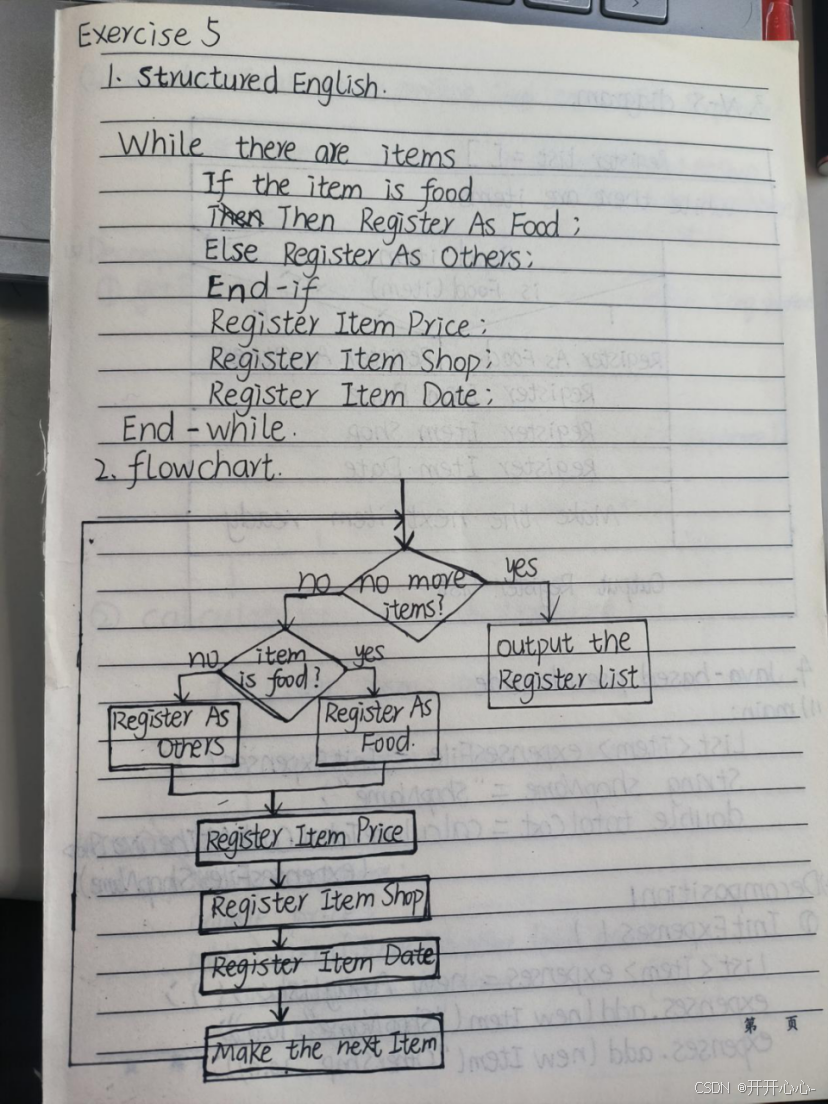 Exercise 5
1. Structured English.
While there are items
If the item is food
Then Then Register As Food;
Else Register As Others;
End-if
Register Item Price;
Register Item Shop;
Register Item Date;
End-while.
2. flowchart.
no more items?
no
yes
output the
Register List
item
is food?
no
yes
Register As
Others
Register As
Food.
Register Item Price
Register Item Shop
Register Item Date
Make the next Item
第 页
CSDN @开开心心-